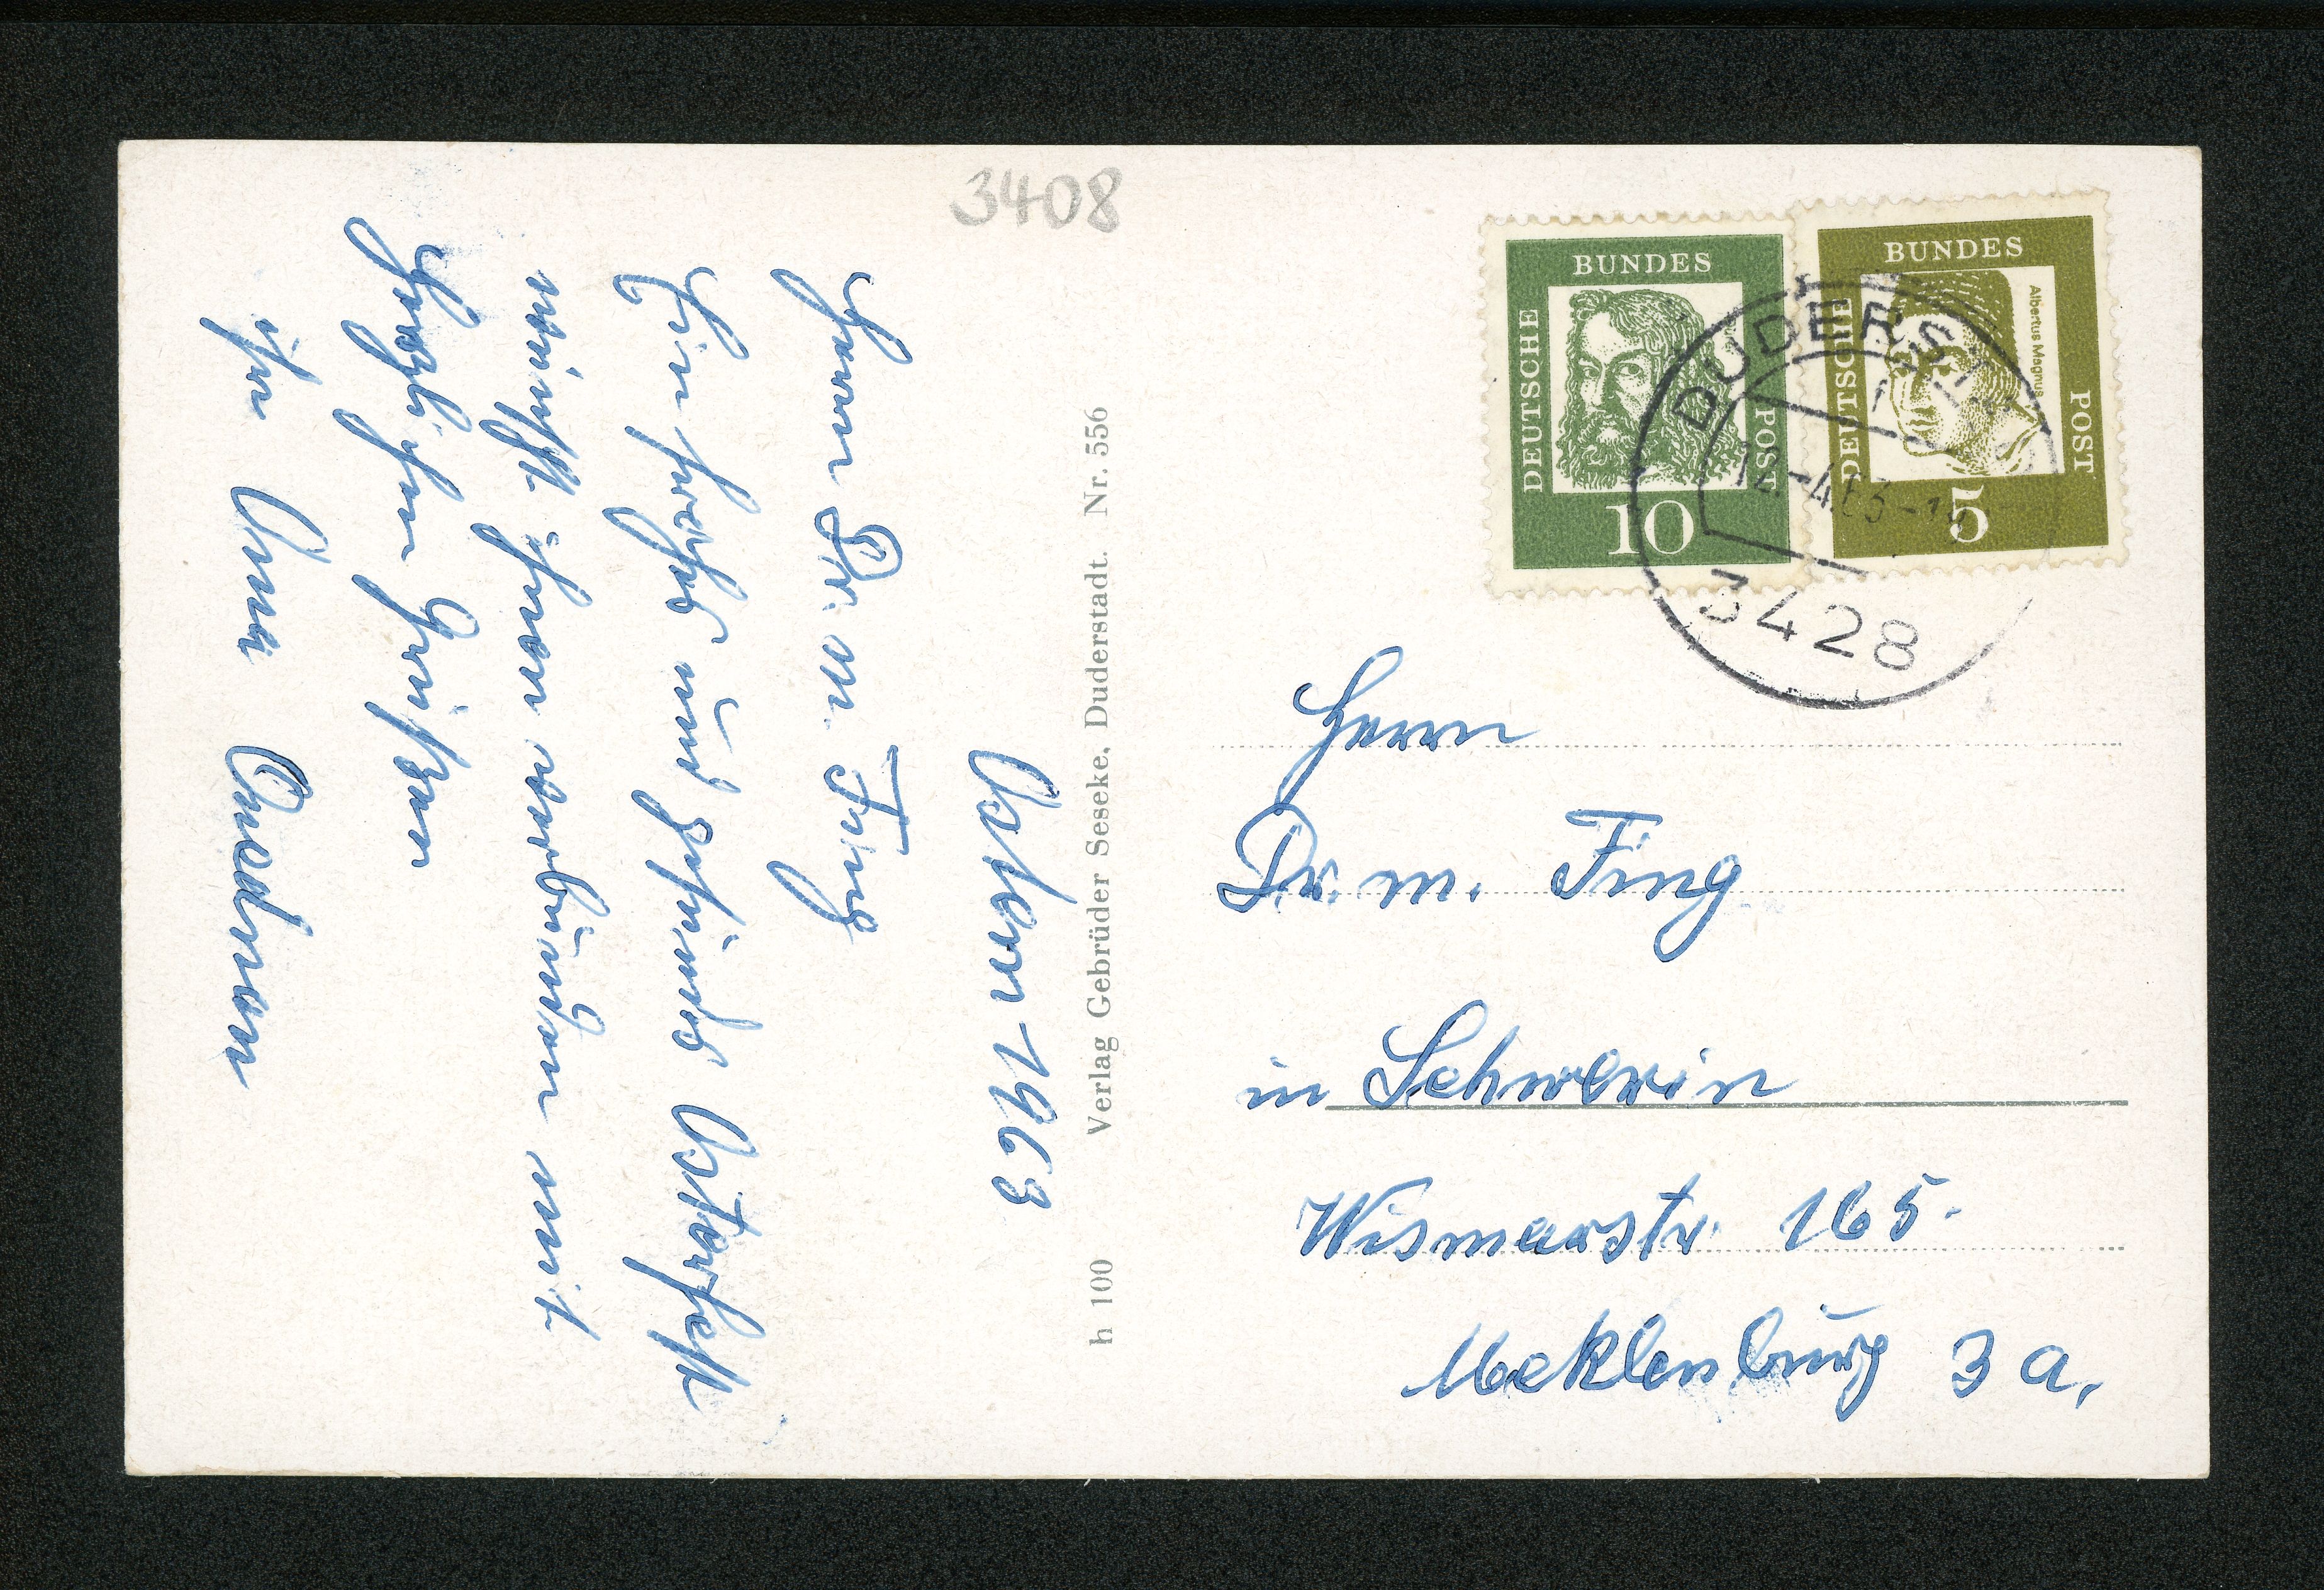 3408
Ostern 1963
Herrn Dr. m. Fing
Ein frohes und gesundes Osterfest
wünscht Ihnen verbunden mit
herzlichen Grüßen
Ihr
h 100 Verlag Gebrüder Seseke, Duderstadt. Nr. 556
BUNDES
DEUTSCHE
POST
10
BUNDES
DEUTSCHE
POST
Albertus Magnus
5
DUDERST
12.-4.63-1
3428
Herrn
Dr. m. Fing
in Schwerin
Wismarstr. 165.
Meklenburg 3 a.